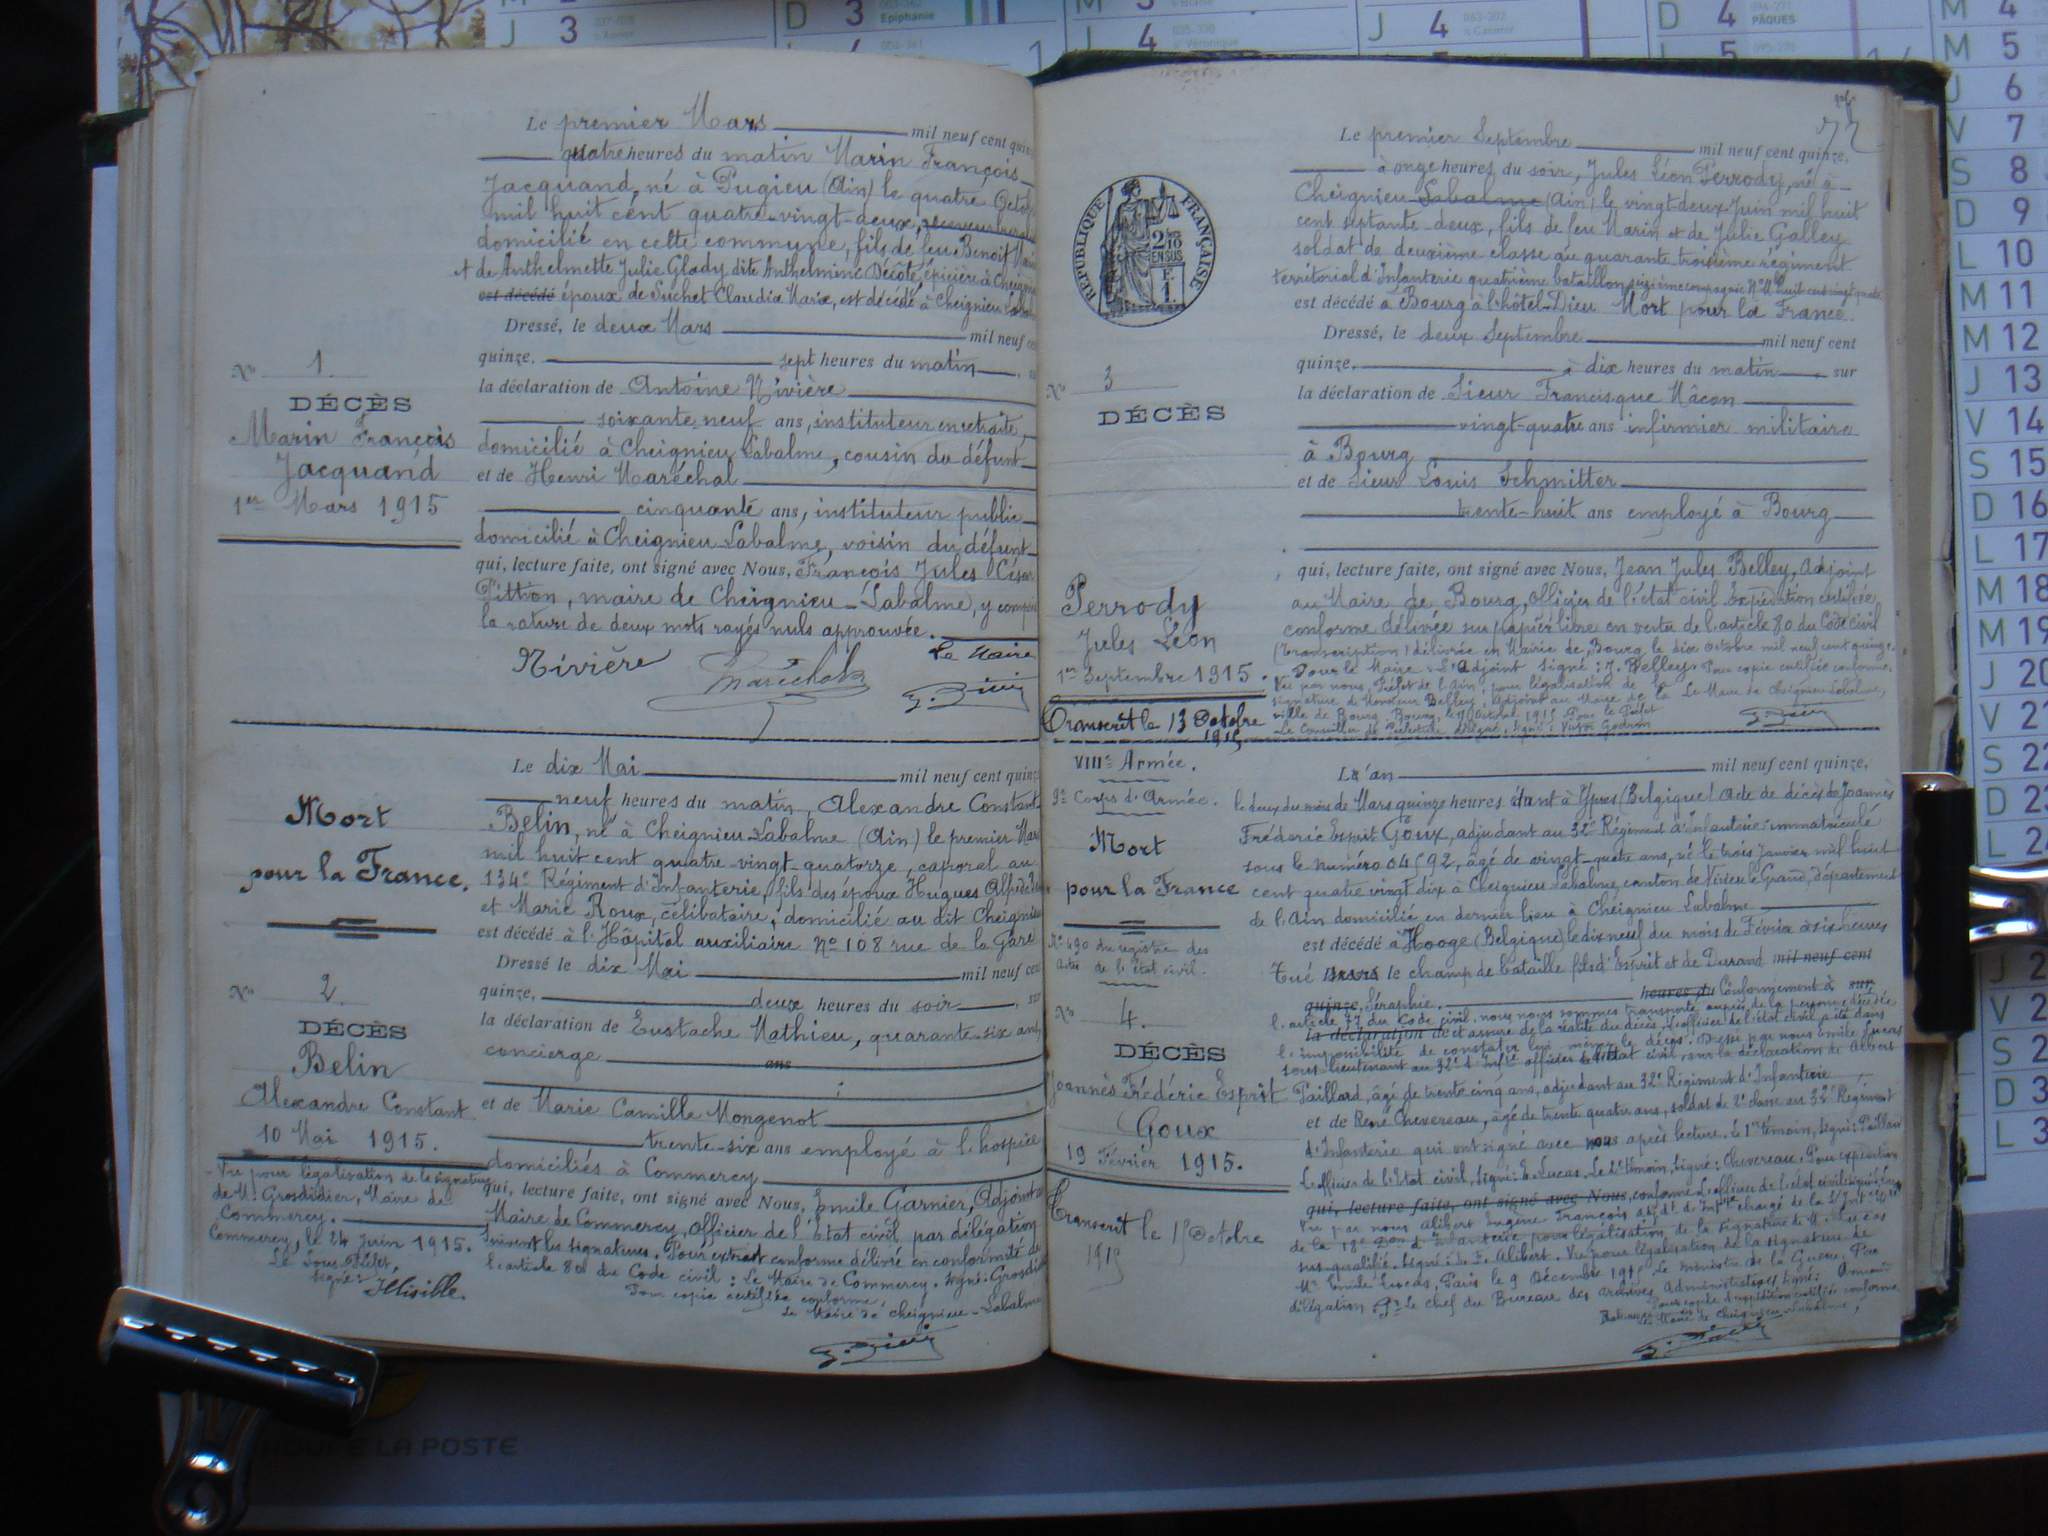 Le premier Mars mil neuf cent quin
quatre heures du matin Marin François
Jacquand, né à Pugieu (Ain) le quatre Octob
mil huit cent quatre-vingt-deux, receveur bural
domicilié en cette commune, fils de feu Benoit Marin
et de Anthelmette Julie Glady dite Anthelmine Décôte, épicière à Cheignieu
est décédé époux de Suchet Claudia Marie, est décédé à Cheignieu Labal
Dressé, le deux Mars mil neuf cent
quinze, sept heures du matin, su
la déclaration de Antoine Rivière
soixante-neuf ans, instituteur en retraite,
domicilié à Cheignieu Labalme, cousin du défunt
et de Henri Maréchal
cinquante ans, instituteur public
domicilié à Cheignieu Labalme, voisin du défunt
qui, lecture faite, ont signé avec Nous, François Jules César
Pittion, maire de Cheignieu-Labalme, y compris
la rature de deux mots rayés nuls approuvée.
Le Maire
Rivière Maréchal
No 1.
DÉCÈS
Marin François
Jacquand
1er Mars 1915
Le dix Mai mil neuf cent quinze
neuf heures du matin, Alexandre Constant
Belin, né à Cheignieu Labalme (Ain) le premier Mars
mil huit cent quatre-vingt-quatorze, caporal au
134e Régiment d'Infanterie, fils des époux Hugues Alfred
et Marie Roux, célibataire, domicilié au dit Cheignieu
est décédé à l'Hôpital auxiliaire No 108 rue de la Gare
Dressé le dix Mai mil neuf cent
quinze, deux heures du soir, sur
la déclaration de Eustache Mathieu, quarante-six ans,
concierge ans
et de Marie Camille Mongenot
trente-six ans employé à l'hospice
domiciliés à Commercy
qui, lecture faite, ont signé avec Nous, Emile Garnier, Adjoint
Maire de Commercy, officier de l'état civil par délégation
suivent les signatures. Pour extrait conforme délivré en conformité de
l'article 80 du Code civil : Le Maire de Commercy. Signé: Grosdidier
Pour copie certifiée conforme.
Le Maire de Cheignieu-Labalme
Mort
pour la France.
No 2.
DÉCÈS
Belin
Alexandre Constant
10 Mai 1915.
Vu pour légalisation de la signature
de M. Grosdidier, Maire de
Commercy.
Commercy, le 24 Juin 1915.
Le Sous-Préfet,
signé: Illisible.
72
Le premier Septembre mil neuf cent quinze,
à onze heures du soir, Jules Léon Perrody, né à
Cheignieu Labalme (Ain) le vingt-deux Juin mil huit
cent septante-deux, fils de feu Marin et de Julie Galley
soldat de deuxième classe au quarante troisième régiment
territorial d'Infanterie quatrième bataillon seizième compagnie No M huit cent vingt quatre
est décédé à Bourg à l'hôtel-Dieu Mort pour la France.
Dressé, le deux Septembre mil neuf cent
quinze, à dix heures du matin, sur
la déclaration de Sieur Francisque Mâcon
vingt-quatre ans infirmier militaire
à Bourg
et de Sieur Louis Schmitter
trente-huit ans employé à Bourg
qui, lecture faite, ont signé avec Nous, Jean Jules Belley, Adjoint
au Maire de Bourg, officier de l'état civil. Expédition certifiée
conforme délivrée sur papier libre en vertu de l'article 80 du Code civil
(Transcription) délivrée en Mairie de Bourg le dix Octobre mil neuf cent quinze.
Pour le Maire : L'Adjoint signé : J. Belley. Pour copie certifiée conforme.
Vu par nous, Préfet de l'Ain, pour légalisation de la Le Maire de Cheignieu Labalme,
signature de Monsieur Belley, Adjoint au Maire de la
ville de Bourg. Bourg, le 11 Octobre 1915 Pour le Préfet
Le Conseiller de Préfecture délégué, signé :
RÉPUBLIQUE FRANÇAISE
2/10
EN SUS
No 3
DÉCÈS
Perrody
Jules Léon
1er Septembre 1915.
Transcrit le 13 Octobre
1915
L'an mil neuf cent quinze,
le deux du mois de Mars quinze heures étant à Ypres (Belgique) Acte de décès de Joannès
Fréderic Esprit Goux, adjudant au 32e Régiment d'Infanterie immatriculé
sous le numéro 04592, âgé de vingt-quatre ans, né le trois Janvier mil huit
cent quatre vingt dix à Cheignieu Labalme, canton de Virieu le Grand, département
de l'Ain domicilié en dernier lieu à Cheignieu Labalme
est décédé à Hooge (Belgique) le dix neuf du mois de Février à six heures
Tué dans le champ de bataille fils d'Esprit et de Durand mil neuf cent
quinze, Séraphie. heures du Conformément à sur
l'article 77 du Code civil, nous nous sommes transporté auprès de la personne décédée
la déclaration de et assuré de la réalité du décès. L'officier de l'état civil a été dans
l'impossibilité de constater lui même le décès. Dressé par nous Emile Lucas
sous-lieutenant au 32e d'Infie officier de l'état civil sur la déclaration de Albert
Paillard, âgé de trente cinq ans, adjudant au 32e Régiment d'Infanterie
et de René Chevereau, âgé de trente quatre ans, soldat de 2e classe au 32e Régiment
d'Infanterie qui ont signé avec nous après lecture. Le 1er témoin, signé: Paillard
L'officier de l'Etat civil, signé: E. Lucas. Le 2e témoin, signé: Chevereau. Pour expédition
qui, lecture faite, ont signé avec Nous, conforme L'officier de l'état civil signé: Lucas
Vu par nous Alibert Eugène François
de la 18e Don d'Infanterie pour légalisation de la signature de M. Lucas
sus-qualifié. Signé: E. F. Alibert. Vu pour légalisation de la signature de
Mr Emile Lucas, Paris le 9 Décembre 1915 Le ministre de la Guerre, Par
délégation Pr Le chef du Bureau des Archives Administratives signé:
Pour copie d'expédition certifiée conforme
Le Maire de Cheignieu-Labalme,
VIIIe Armée.
9e Corps d'Armée.
Mort
pour la France
No 490 du registre des
actes de l'état civil.
No 4.
DÉCÈS
Joannès Frédéric Esprit
Goux
19 Février 1915.
Transcrit le 1er Octobre
1915
J 3
D 3 Epiphanie
L 4 Véronique
J 4
D 4 PÂQUES
L 5
M 4
M 5
J 6
V 7
S 8
D 9
L 10
M 11
M 12
J 13
V 14
S 15
D 16
L 17
M 18
M 19
J 20
V 21
S 22
D 23
L 24
LA POSTE